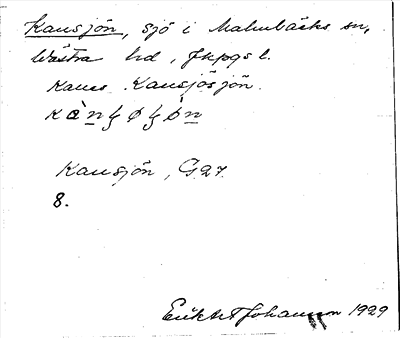 Kansjön, sjö i Malmbäcks sn,
Västra hd, Jkpgs l.
Kansjösjön.
Kansjön, G27.
8.
Johansson 1929